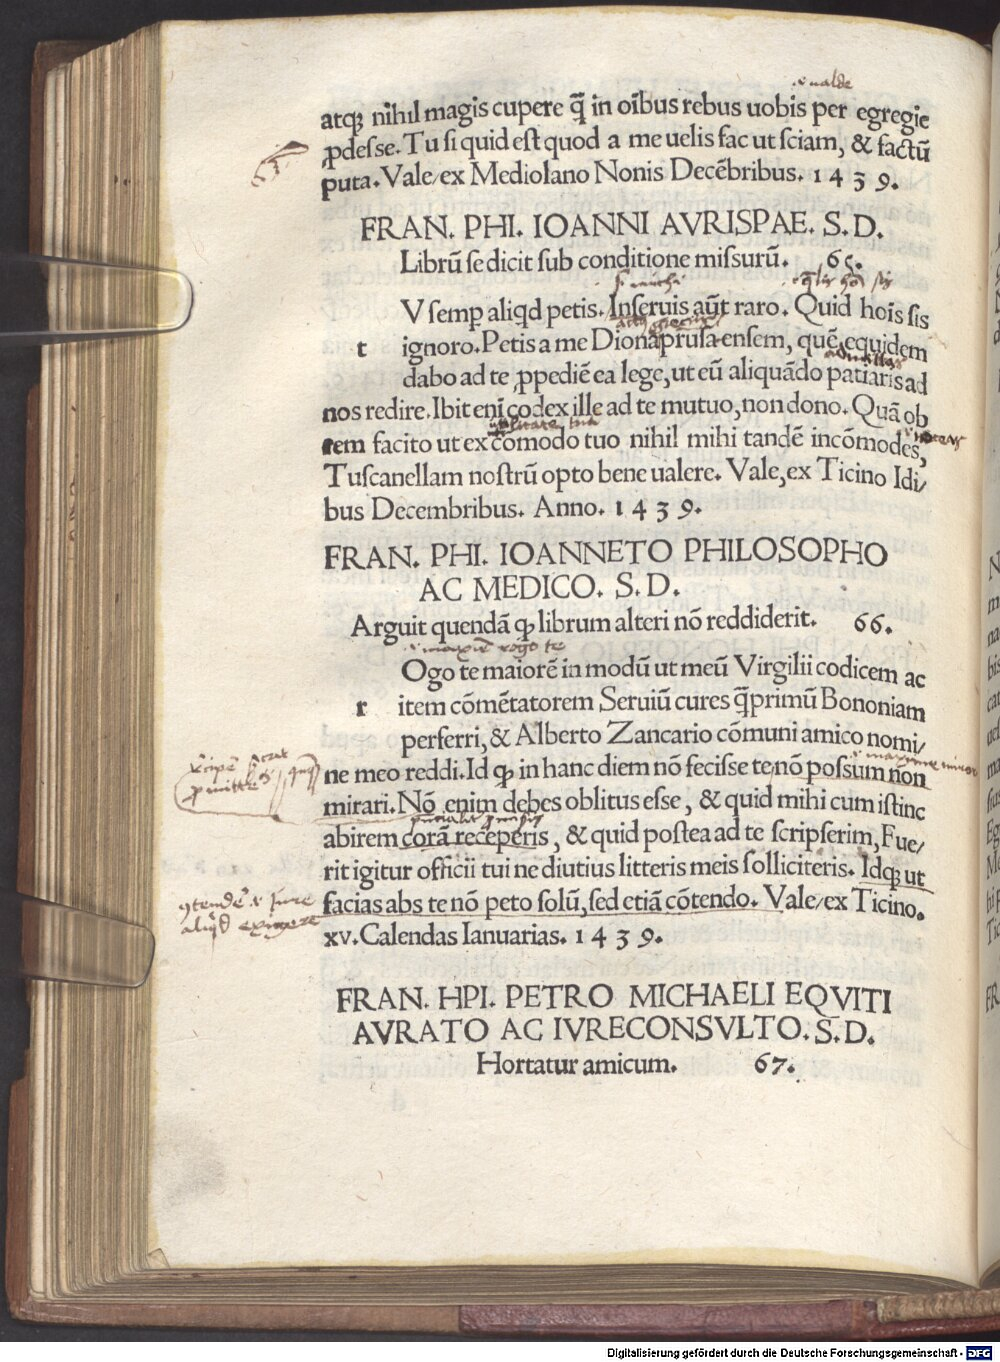 .i. ualde
atq; nihil magis cupere q̃ in oĩbus rebus uobis per egregie
ꝓdesse. Tu si quid est quod a me uelis fac ut sciam, & factũ
puta. Vale, ex Mediolano Nonis Decẽbribus. 1439.
FRAN. PHI. IOANNI AVRISPAE. S. D.
Librũ se dicit sub conditione missurũ. 65.
V semp aliqd petis. Inseruis aũt raro. Quid hoĩs sis
t ignoro. Petis a me Dionã prusaensem, quẽ equidem
dabo ad te ꝓpediẽ ea lege, ut eũ aliquãdo patiaris ad
nos redire. Ibit enĩ codex ille ad te mutuo, non dono. Quã ob
rem facito ut ex cõmodo tuo nihil mihi tandẽ incõmodes,
Tuscanellam nostrũ opto bene ualere. Vale, ex Ticino Idi/
bus Decembribus. Anno. 1439.
FRAN. PHI. IOANNETO PHILOSOPHO
AC MEDICO. S. D.
Arguit quendã ꝙ librum alteri nõ reddiderit. 66.
.i. maxime rogo te
Ogo te maiorẽ in modũ ut meũ Virgilii codicem ac
r item cõmẽtatorem Seruiũ cures q̃primũ Bononiam
perferri, & Alberto Zancario cõmuni amico nomi/
ne meo reddi. Id ꝙ in hanc diem nõ fecisse te, nõ possum non
mirari. Nõ enim debes oblitus esse, & quid mihi cum istinc
abirem corã receperis, & quid postea ad te scripserim, Fue/
rit igitur officii tui ne diutius litteris meis solliciteris. Idq; ut
facias abs te nõ peto solũ, sed etiã cõtendo. Vale, ex Ticino.
xv. Calendas Ianuarias. 1439.
FRAN. HPI. PETRO MICHAELI EQVITI
AVRATO AC IVRECONSVLTO. S. D.
Hortatur amicum. 67.
Digitalisierung gefördert durch die Deutsche Forschungsgemeinschaft - DFG